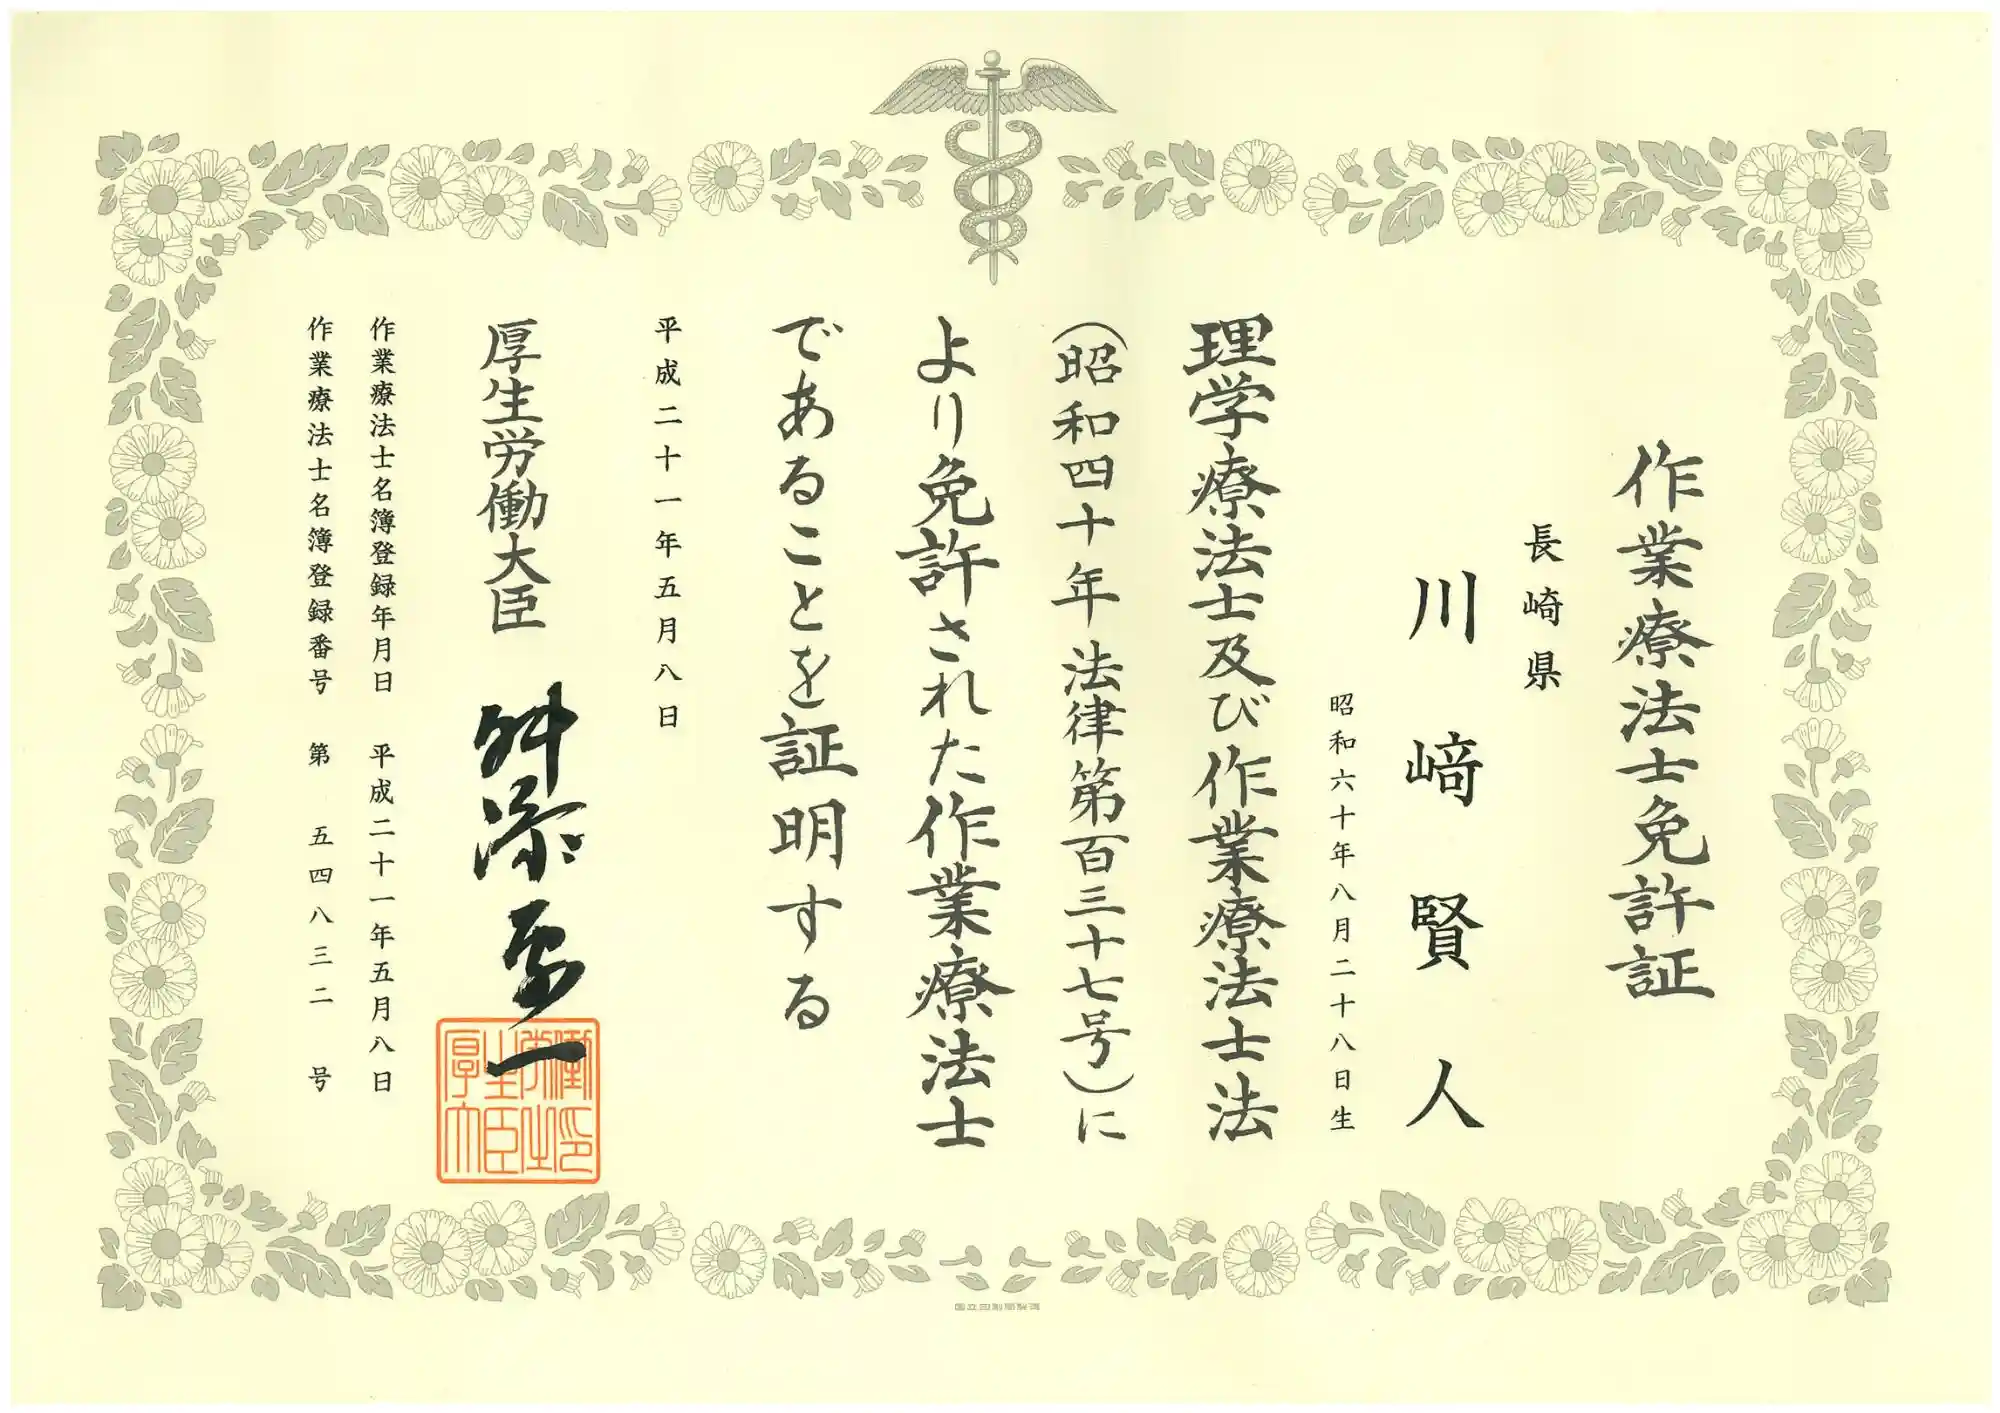 作業療法士免許証
長崎県
川﨑賢人
昭和六十年八月二十八日生
理学療法士及び作業療法士法
(昭和四十年法律第百三十七号)に
より免許された作業療法士
であることを証明する
平成二十一年五月八日
厚生労働大臣 舛添要一
厚生労働大臣之印
作業療法士名簿登録年月日 平成二十一年五月八日
作業療法士名簿登録番号 第 五四八三二 号